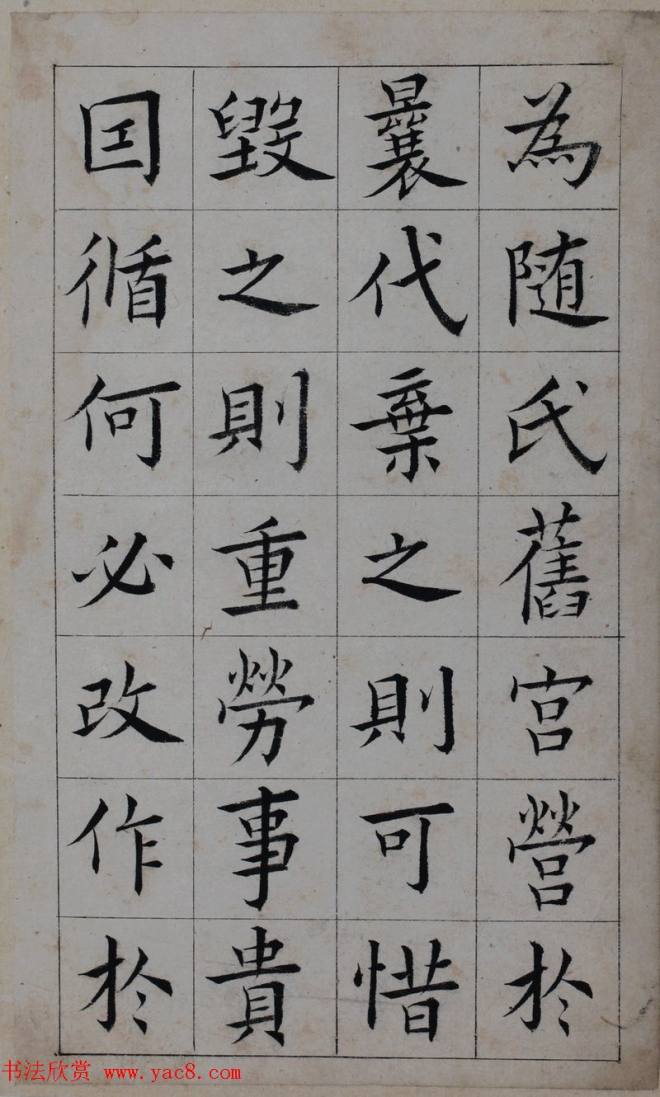 為随氏舊宫營於
曩代棄之則可惜
毀之則重勞事貴
因循何必改作於
书法欣赏 www.yac8.com